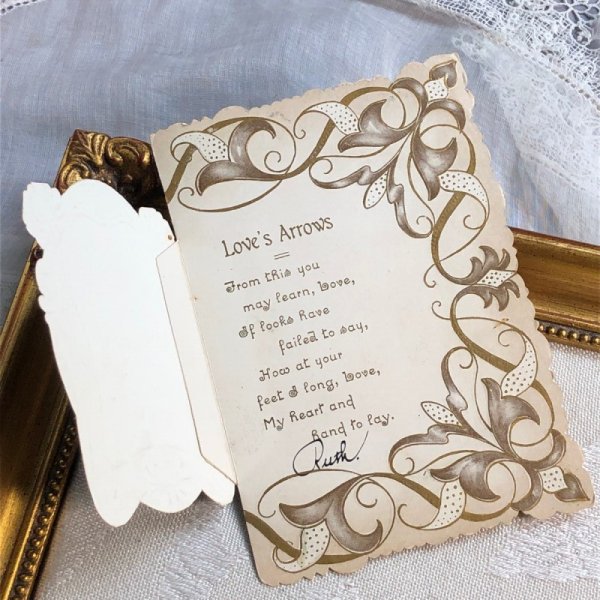 Love's Arrows
From this you
may learn, Love,
If looks have
failed to say,
How at your
feet I long, Love,
My heart and
hand to lay.
Ruth.